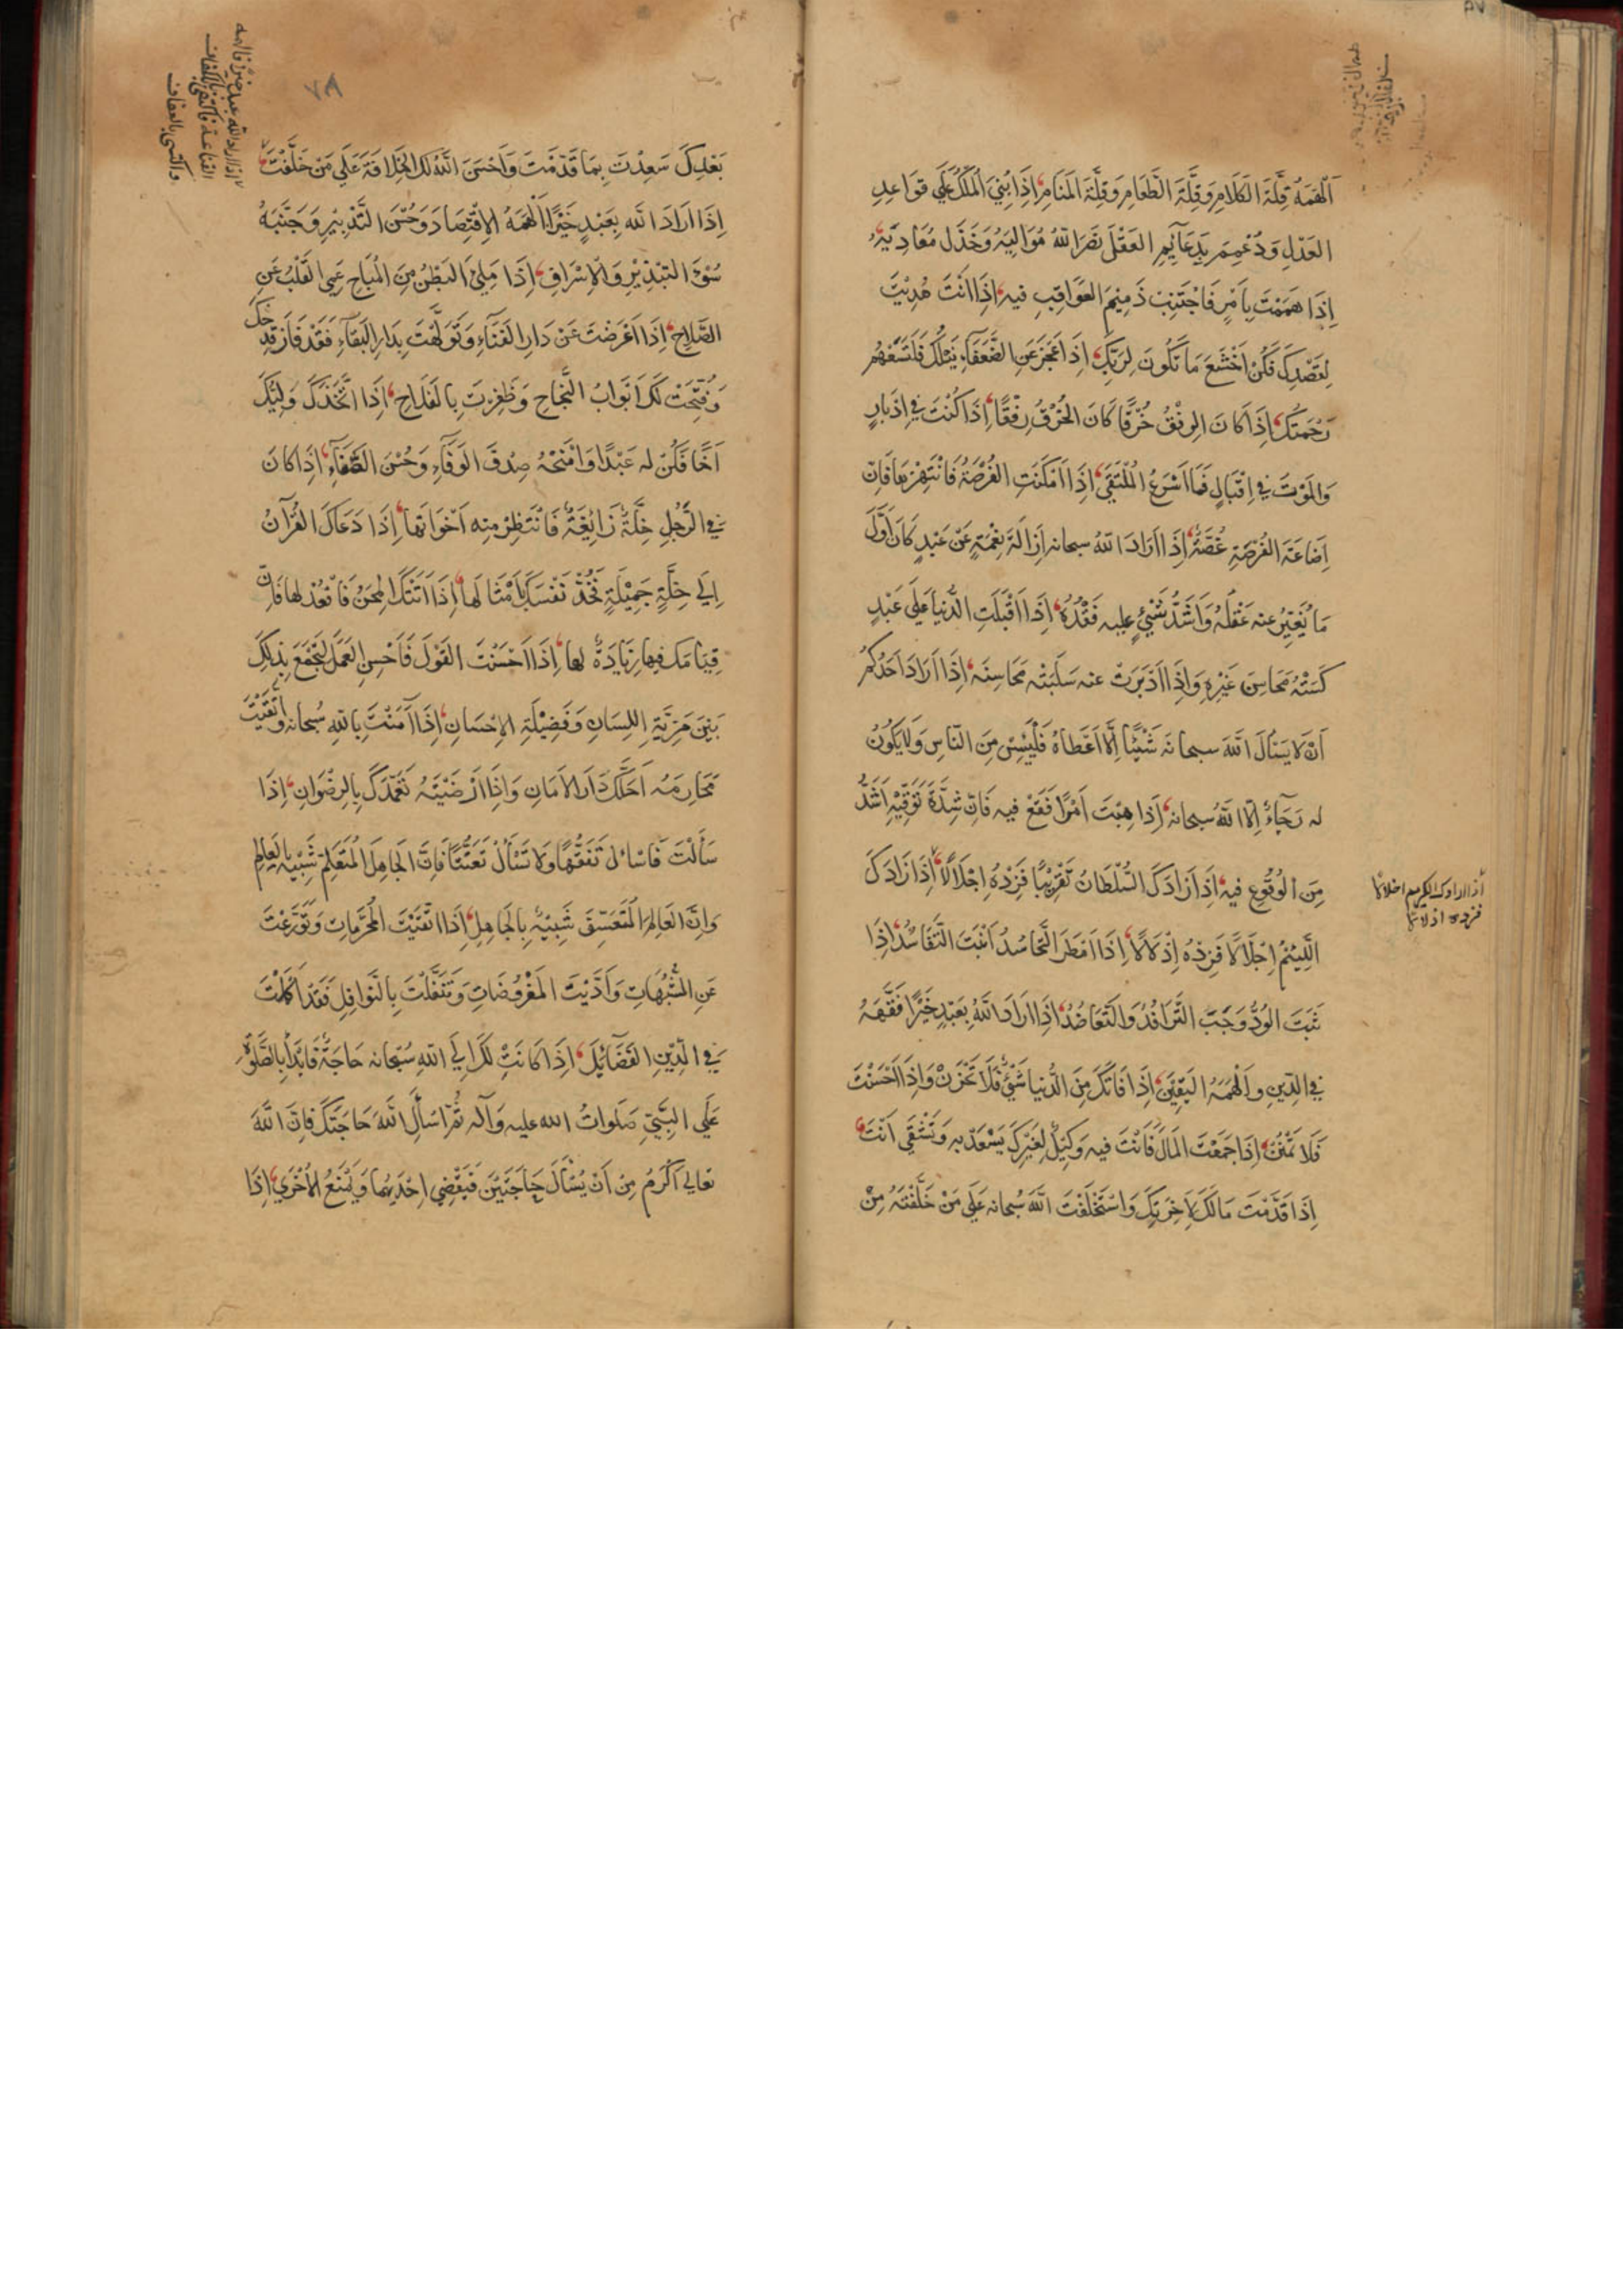 اَلْهَمَهُ قِلَّةَ الكَلَامِ وَقِلَّةَ الطَّعَامِ وَقِلَّةَ المَنَامِ اِذَا بُنِيَ المُلْكُ عَلَي قَوَاعِدِ
العَدْلِ وَدُعِمَ بِدَعَآئِمِ العَقْلِ نَصَرَ اللهُ مُوَالِيَهُ وَخَذَلَ مُعَادِيَهُ
اِذَا هَمَمْتَ بِاَمْرٍ فَاجْتَنِبْ ذَمِيْمَ العَوَاقِبِ فيه اِذَا اَنْتَ هُدِيْتَ
لِقَصْدِكَ فَكُنْ اَخْشَعَ مَا تَكُونَ لِرَبِّكَ اِذَا عَجَزَ عَنِ الضُّعَفَآءِ نَيْلُكَ فَلْتَسَعْهُمْ
رَحْمَتُكَ اِذَا كَانَ الرِفْقُ خُرْقًا كَانَ الخُرْقُ رِفْقًا اِذَا كُنْتَ فِي اِدْبَارٍ
وَالمَوْتُ فِي اِقْبَالٍ فَمَا اَسْرَعَ المُلْتَقَي اِذَا اَمْكَنَتِ الفُرْصَةُ فَانْتَهِزْهَا فَاِنَّ
اِضَاعَةَ الفُرْصَةِ غُصَّةٌ اِذَا اَرَادَ اللهُ سبحانه اِزَالَةَ نِعْمَةٍ عَنْ عَبْدٍ كَانَ اَوَّلَ
مَا يُغَيِّرُ عنه عَقْلَهُ وَاَشَدُّ شَيْءٍ عليه فَقْدُهُ اِذَا اَقْبَلَتِ الدُّنيَا عَلَي عَبْدٍ
كَسَتْهُ مَحَاسِنَ غَيْرِهِ وَاِذَا اَدْبَرَتْ عنه سَلَبَتْه مَحَاسِنَهُ اِذَا اَرَادَ اَحَدُكُمْ
اَنْ لَا يَسْأَلَ اللهَ سبحانه شَيْئًا اِلَّا اَعْطَاهُ فَلْيَيْئَسْ مِنَ النَّاسِ وَلَا يَكُونُ
له رَجَآءٌ اِلَّا اللهُ سبحانه اِذَا هِبْتَ اَمْرًا فَقَعْ فيه فَاِنَّ شِدَّةَ تَوَقِّيْهِ اَشَدُّ
مِنَ الوُقُوعِ فيه اِذَا زَادَكَ السُّلْطَانُ تَقْرِيْبًا فَزِدْهُ اِجْلَالًا اِذَا زَادَكَ
اللَّئِيْمُ اِجْلَالًا فَزِدْهُ اِذْلَالًا اِذَا اَمْطَرَ التَّحَاسُدُ اَنْبَتَ التَّفَاسُدَ اِذَا
ثَبَتَ الوُدُّ وَجَبَ التَّرَافُدُ وَالتَّعَاضُدُ اِذَا اَرَادَ اللهُ بِعَبْدٍ خَيْرًا فَقَّهَهُ
فِي الدِّينِ وَاَلْهَمَهُ اليَقِيْنَ اِذَا فَاتَكَ مِنَ الدُّنيَا شَيْءٌ فَلَا تَحْزَنْ وَاِذَا اَحْسَنْتَ
فَلَا تَمْنُنْ اِذَا جَمَعْتَ المَالَ فَاَنْتَ فيه وَكِيْلٌ لِغَيْرِكَ يَسْعَدُ به وَتَشْقَي اَنْتَ
اِذَا قَدَّمْتَ مَالَكَ لِآخِرَتِكَ وَاسْتَخْلَفْتَ اللهَ سُبحانه عَلَي مَنْ خَلَّفْتَهُ مِنْ
٧٨
بَعْدِكَ سَعِدْتَ بِمَا قَدَّمْتَ وَاَحْسَنَ اللهُ لَكَ الخِلَافَةَ عَلَي مَنْ خَلَّفْتَ
اِذَا اَرَادَ الله بِعَبْدٍ خَيْرًا اَلْهَمَهُ الاِقْتِصَادَ وَحُسْنَ التَّدْبِيْرِ وَجَنَّبَهُ
سُوْءَ التَبْذِيْرِ وَالاِسْرَافِ اِذَا مُلِئَ البَطْنُ مِنَ المُبَاحِ عَمِيَ القَلْبُ عَنِ
الصَّلَاحِ اِذَا اَعْرَضْتَ عَنْ دَارِ الفَنَآءِ وَتَوَلَّهْتَ بِدَارِ البَقَآءِ فَقَدْ فَازَ قِدْحُكَ
وَفُتِحَتْ لَكَ اَبْوَابُ النَّجَاحِ وَظَفِرْتَ بِالفَلَاحِ اِذَا اتَّخَذَكَ وَلِيُّكَ
اَخًا فَكُنْ له عَبْدًا وَامْنَحْهُ صِدْقَ الوَفَآءِ وَحُسْنَ الصَّفَآءِ اِذَا كَانَ
فِي الرَّجُلِ خَلَّةٌ زَائِغَةٌ فَانْتَظِرْ منه اَخْوَاتَها اِذَا دَعَاكَ القُرْآنُ
اِلَي خَلَّةٍ جَمِيْلَةٍ فَخُذْ نَفْسَكَ بِاَمْثَالِهَا اِذَا اَتَتْكَ المِحَنُ فَاقْعُدْ لها فَاِنَّ
قِيَامَكَ فِيها زِيَادَةٌ لها اِذَا اَحْسَنْتَ القَوْلَ فَاَحْسِنِ العَمَلَ لِتَجْمَعَ بِذلِكَ
بَيْنَ مَزِيَّةِ اللِسَانِ وَفَضِيْلَةِ الاِحْسَانِ اِذَا آمَنْتَ بِاللهِ سُبحانه وَاتَّقَيْتَ
مَحَارِمَهُ اَحَلَّكَ دَارَ الاَمَانِ وَاِذَا اَرْضَيْتَهُ تَغَمَّدَكَ بِالرِضْوَانِ اِذَا
سَأَلْتَ فَاسْأَلْ تَفَقُّهًا وَلَا تَسْأَلْ تَعَنُّتًا فَاِنَّ الجَاهِلَ المُتَعَلِّمَ شَبِيْهٌ بِالعَالِمِ
وَاِنَّ العَالِمَ المُتَعَسِّفَ شَبِيْهٌ بِالجَاهِلِ اِذَا اتَّقَيْتَ المُحَرَّمَاتِ وَتَوَرَّعْتَ
عَنِ الشُّبُهَاتِ وَاَدَّيْتَ المَفْرُوضَاتِ وَتَنَفَّلْتَ بِالنَّوَافِلِ فَقَدْ اَكْمَلْتَ
فِي الدِّيْنِ الفَضَائِلَ اِذَا كَانَتْ لَكَ اِلَي اللهِ سُبْحَانه حَاجَةٌ فَابْدَأْ بِالصَّلٰوةِ
عَلَي النَّبِيِّ صَلَوَاتُ الله عليه وَآله ثُمَّ اسْأَلِ اللهَ حَاجَتَكَ فَاِنَّ اللهَ
تعالي اَكْرَمُ مِنْ اَنْ يُسْأَلَ حَاجَتَيْنِ فَيَقْضِي اِحْدَيهُمَا وَيَمْنَعُ الاُخْرَي اِذَا
اذا اراد الله بعبد خيرا الهمه
القناعة فاكتفى بالكفاف
واكتسى بالعفاف